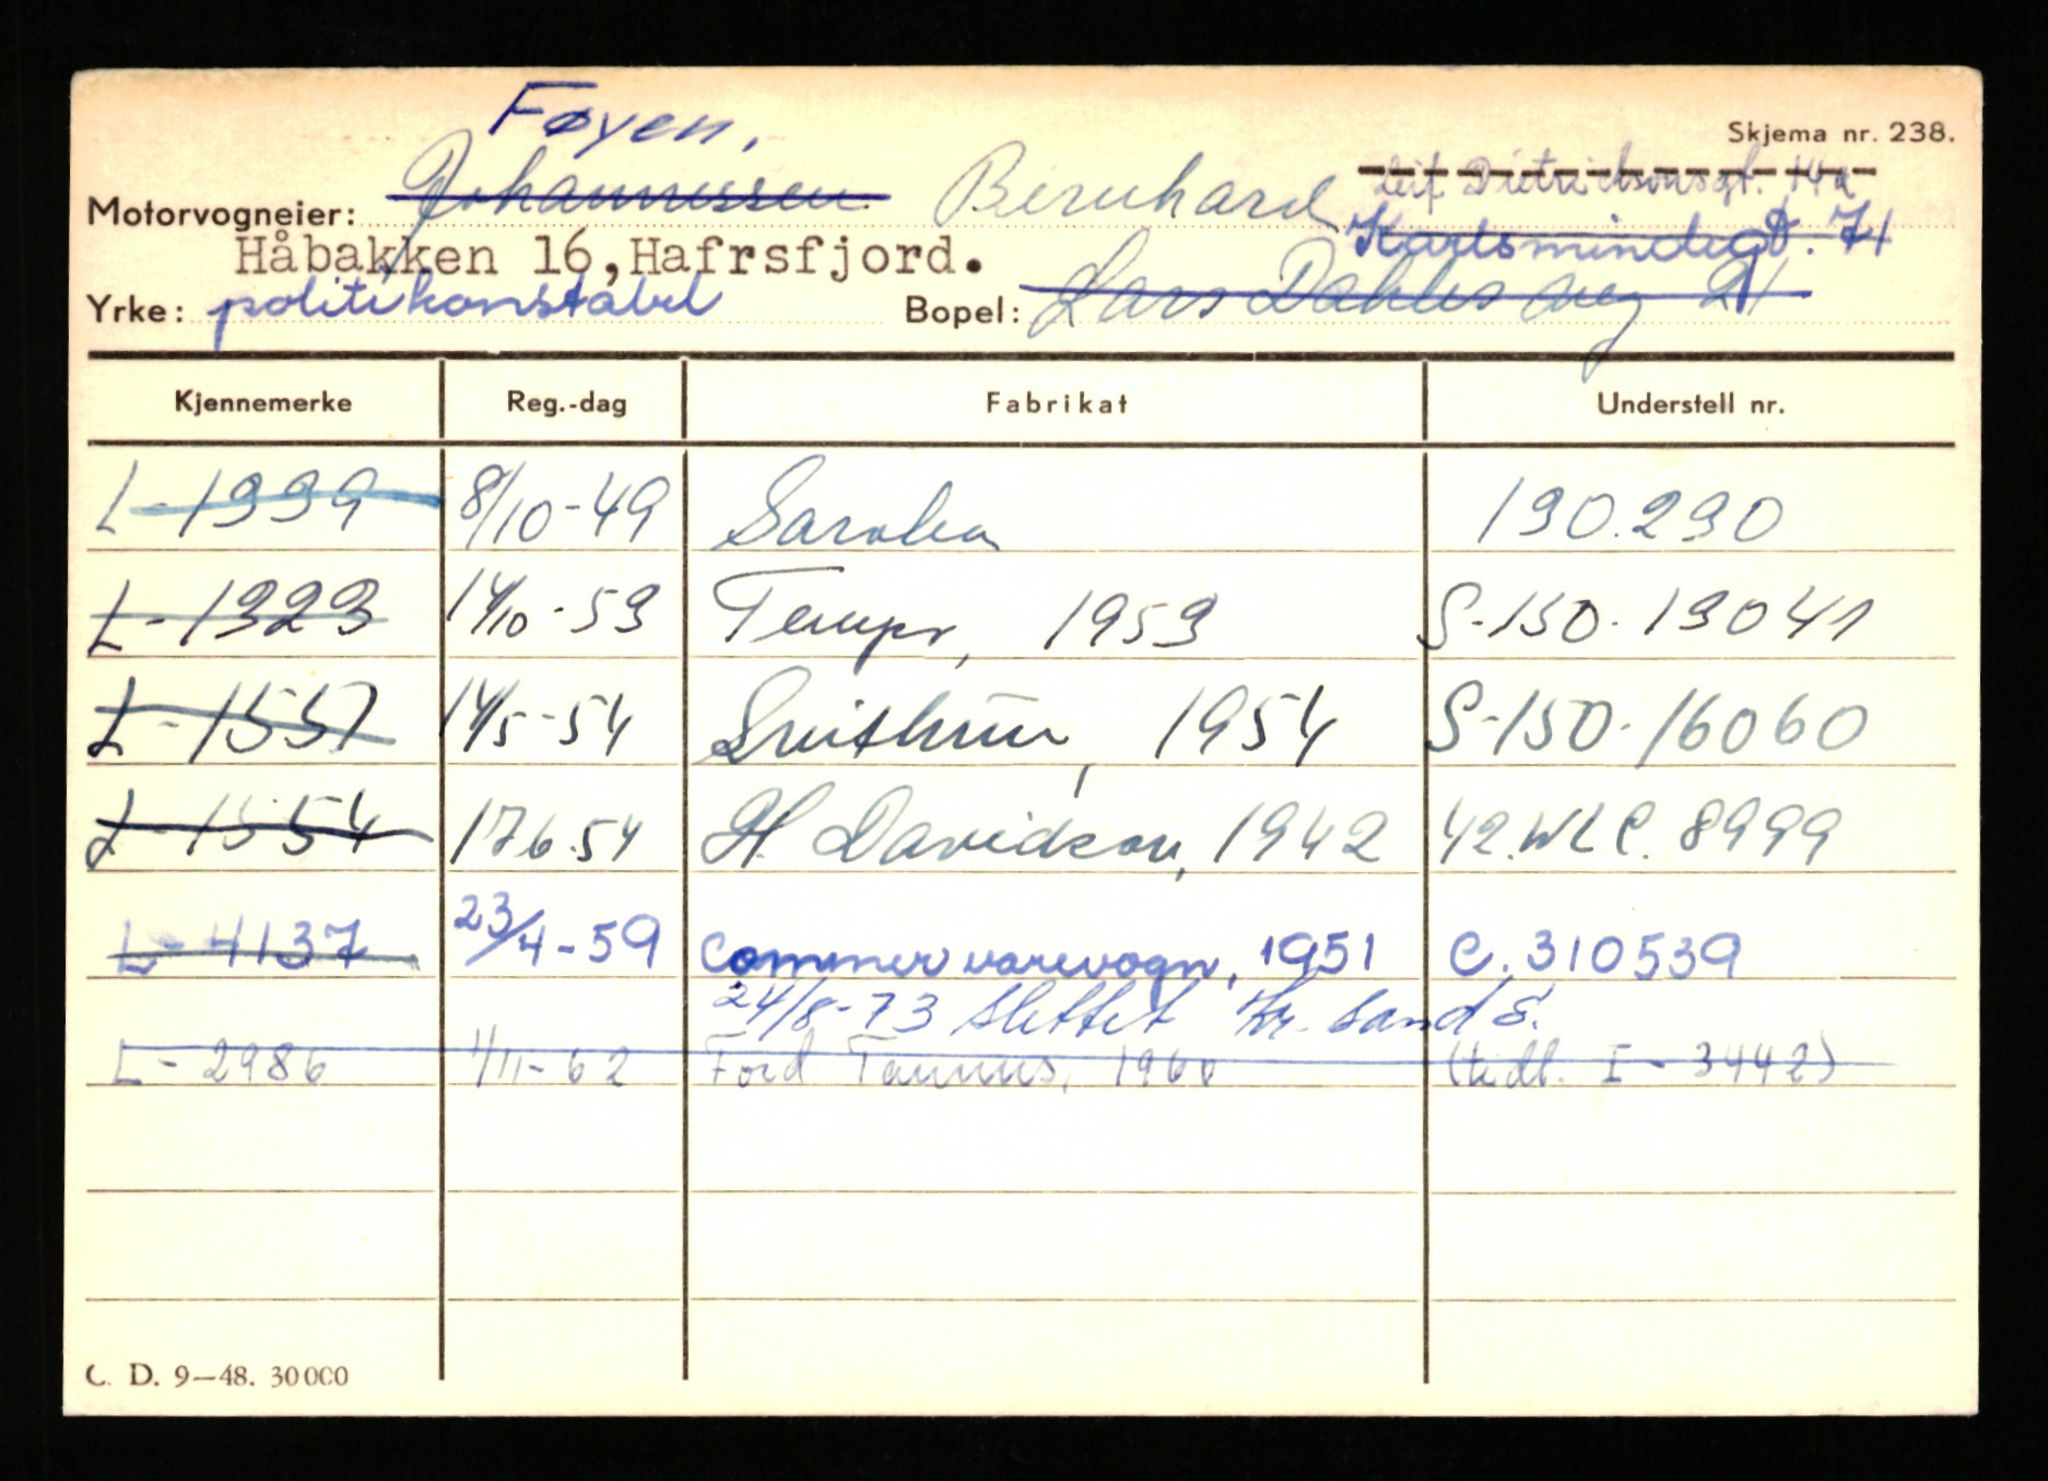 Skjema nr. 238.
Føyen,
Leif Dietrichsonsgt. 14a
Motorvogneier: Johannessen Bernhard
Karlsmindegt. 71
Håbakken 16, Hafrsfjord.
Yrke: politikonstabel Bopel: Lars Dahles veg 21
Kjennemerke Reg.-dag Fabrikat Understell nr.
L-1999 8/10-49 Sarolea 190.290
L-1323 14/10-53 Tempo, 1953 S-150-13041
L-1557 14/5-54 Svithun, 1954 S-150-16060
L-1554 17.6.54 H. Davidson, 1942 42.WLC.8999
L-4137 23/4-59 Commer varevogn, 1951 C.310539
24/8-73 slettet Kr. sand S.
L-2986 1/11-62 Ford Taunus, 1960 (tidl. I-3442)
C. D. 9—48. 30000